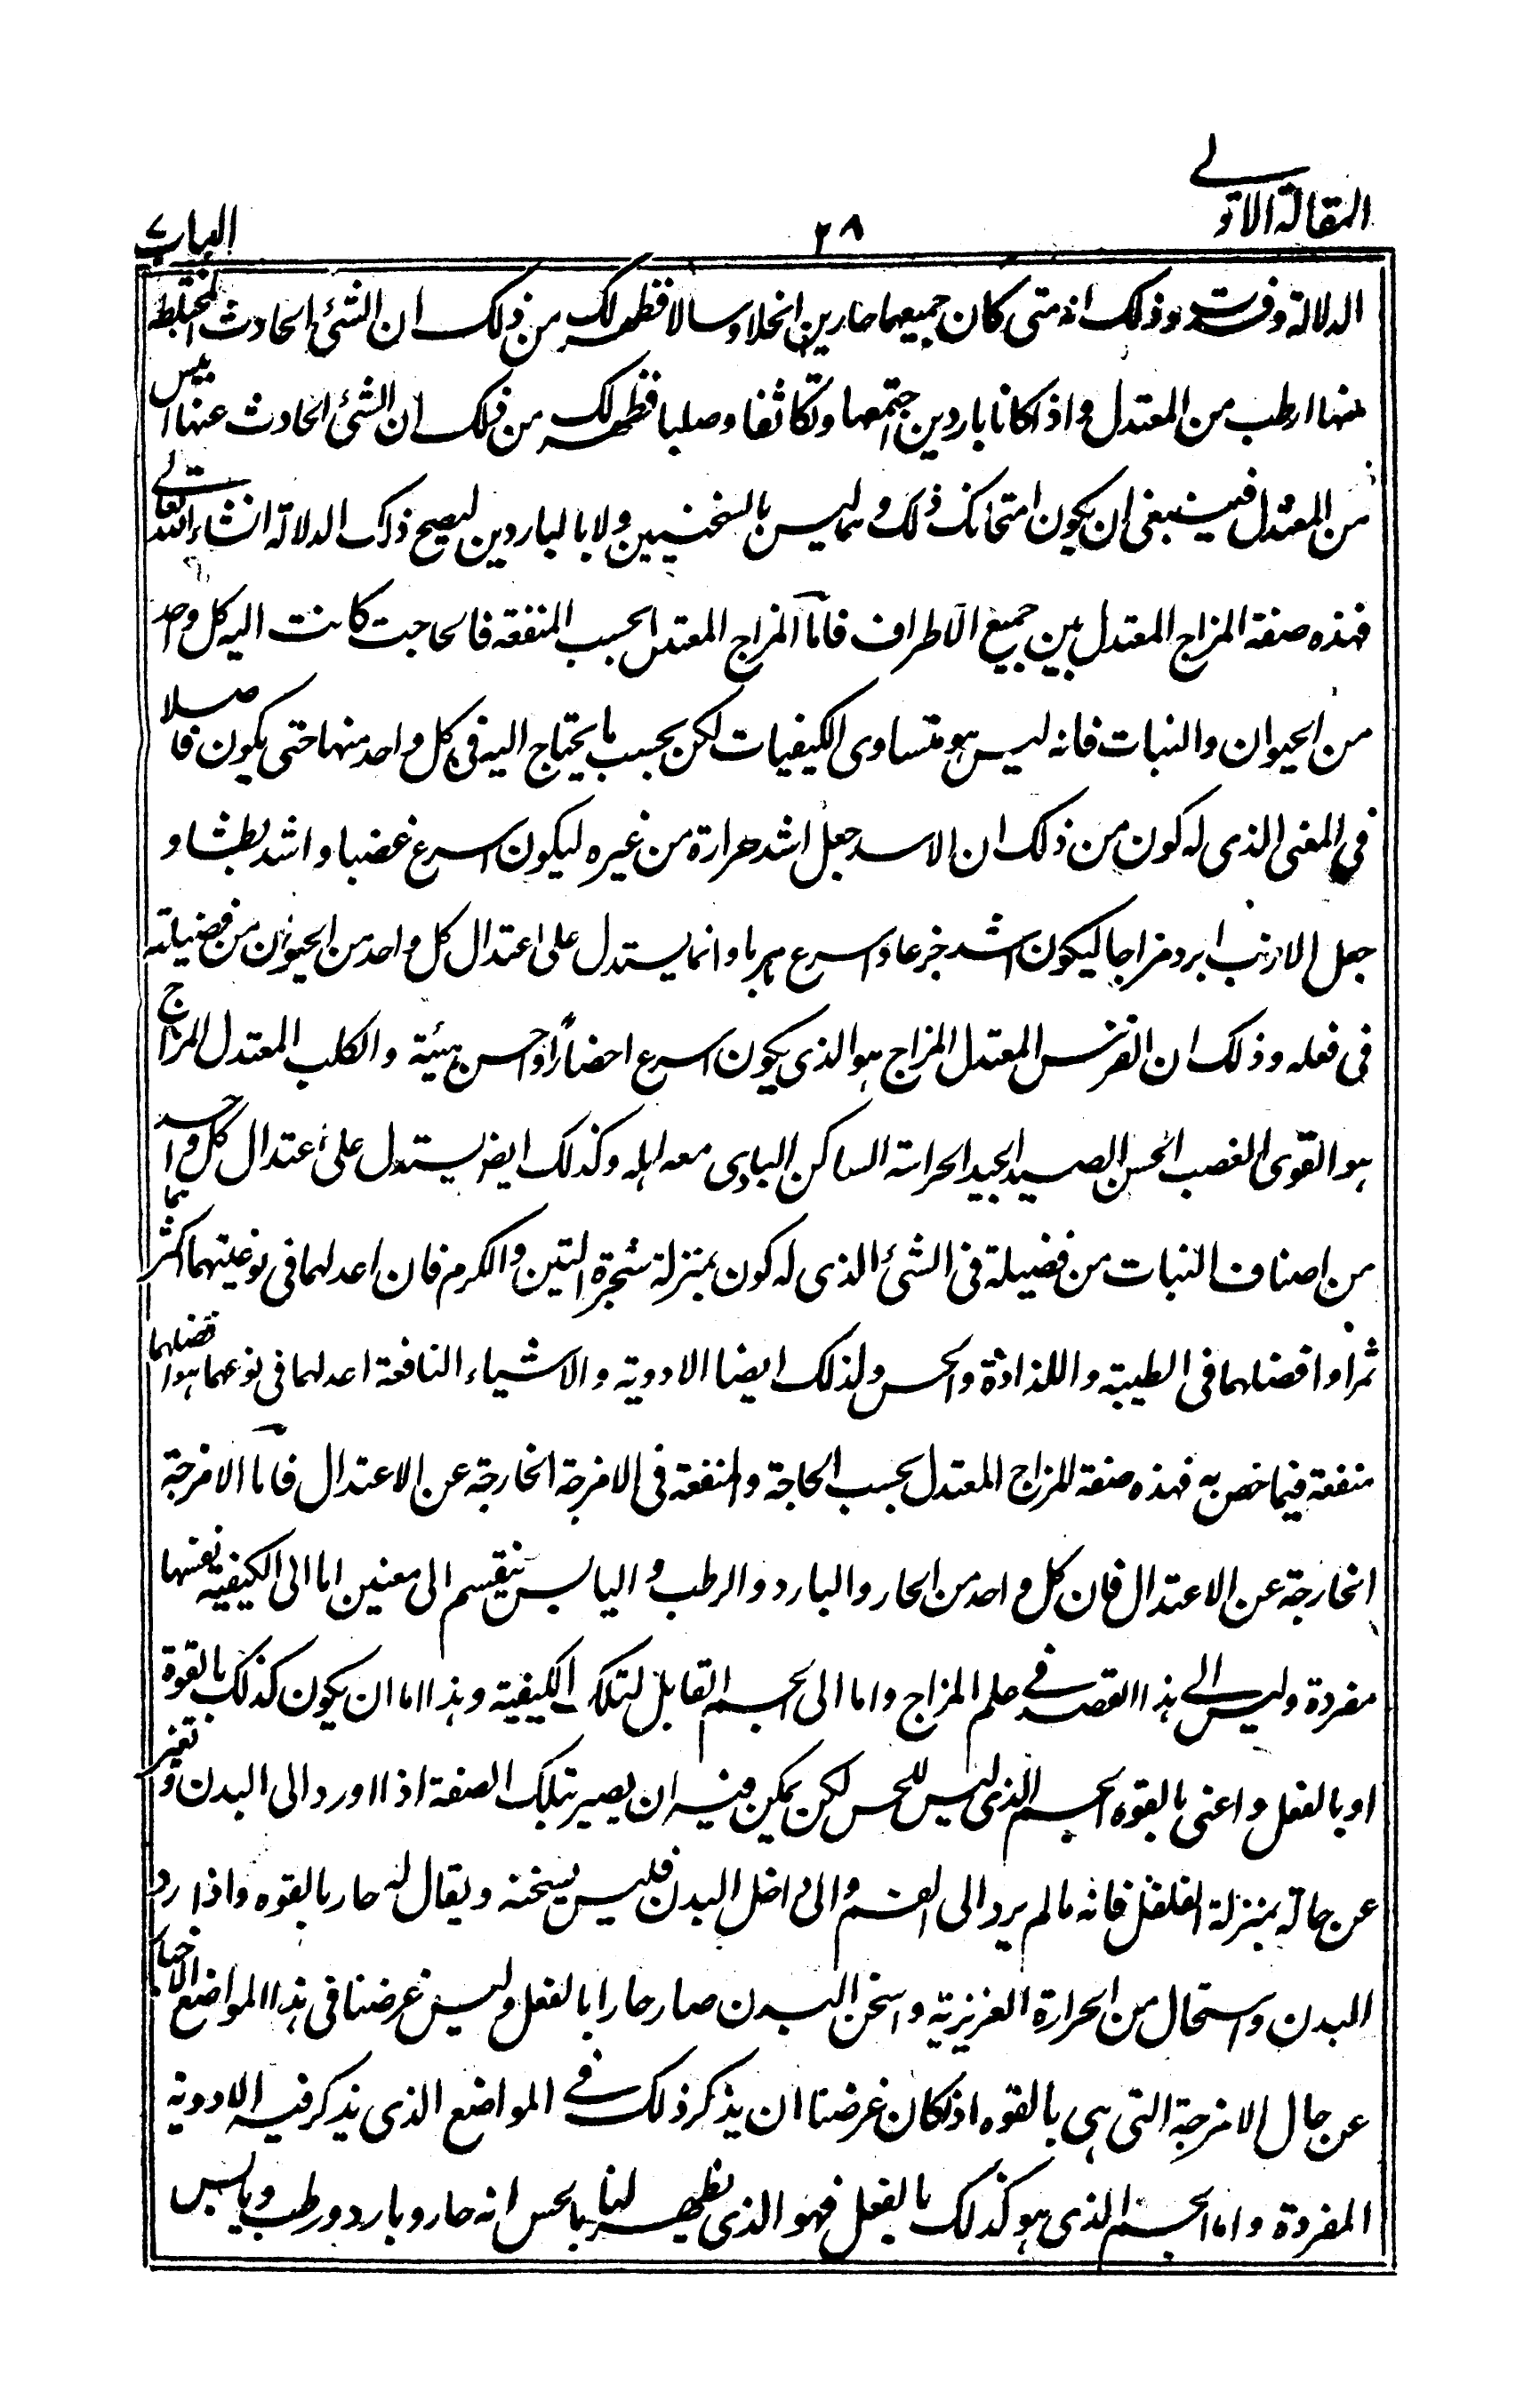 المقالة الاولى
٢٨
الباب ٧
الدلالة وفسدت وذلك انه متى كان جميعهما حارين انحلا وسالا فظهر لك من ذلك ان الشئ الحادث المختلط
منها ارطب من المعتدل و اذا كانا باردين اجتمعا وتكاثفا وصلبا فظهر لك من ذلك ان الشئ الحادث عنها ايبس
من المعتدل فينبغى ان يكون امتحانك ذلك وهما ليس بالسخنيين ولا بالباردين ليصح ذلك الدلالة انشاء الله تعالى
فهذه صفة المزاج المعتدل بين جميع الاطراف فاما المزاج المعتدل بحسب المنفعة فالحاجت كانت اليه كل واحد
من الحيوان والنبات فانه ليس هو متساوى الكيفيات لكن بحسب ما يحتاج اليه فى كل واحد منها حتى يكون فاصلا
فى المعنى الذى له كون من ذلك ان الاسد جعل اشد حرارة من غيره ليكون اسرع غضبا و اشد بطشا و
جعل الارنب ابرد مزاجا ليكون اشد جزعا و اسرع هربا و انما يستدل على اعتدال كل واحد من الحيوان من فضيلته
فى فعله وذلك ان الفرس المعتدل المزاج هو الذى يكون اسرع احضاراً و احسن هيئة والكلب المعتدل المزاج
هو القوى الغصب الحسن الصيد الجيد الحراسة الساكن البادى معه اهله وكذلك ايضا يستدل على اعتدال كل واحد
من اصناف النبات من فضيلة فى الشئ الذى له كون بمنزلة شجرة التين والكرم فان اعدلهما فى نوعيتهما اكثرهما
ثمرا و افضلهما فى الطيبة واللذاذة والحسن ولذلك ايضا الادوية والاشياء النافعة اعدلهما فى نوعهما هو افضلهما
منفعة فيما خص به فهذه صفة للمزاج المعتدل بحسب الحاجة والمنفعة فى الامزجة الخارجة عن الاعتدال فاما الامزجة
الخارجة عن الاعتدال فان كل واحد من الحار والبارد والرطب و اليابس ينقسم الى معنين اما الى الكيفية نفسها
مفردة وليس الى هذا القصد فى علم المزاج واما الى الجسم القابل لتلك الكيفية وهذا اما ان يكون كذلك بالقوة
او بالفعل و اعنى بالقوه الجسم الذى ليس للحس لكن يمكن فيه ان يصير بتلك الصفة اذا اورد الى البدن وتغير
عن حاله بمنزلة الفلفل فانه ما لم يرد الى الفم و الى داخل البدن فليس يسخنه ويقال له حار بالقوه واذا ورد
البدن واستحال من الحرارة الغريزية و اسخن البدن صار حارا بالفعل وليس غرضنا فى هذا المواضع الاخبار
عن حال الامزجة التى هى بالقوه اذ كان غرضنا ان يذكر ذلك فى المواضع الذى يذكر فيه الادوية
المفردة واما الجسم الذى هو كذلك بالفعل فهو الذى يظهر لنا بالحس انه حار و بارد و رطب و يابس